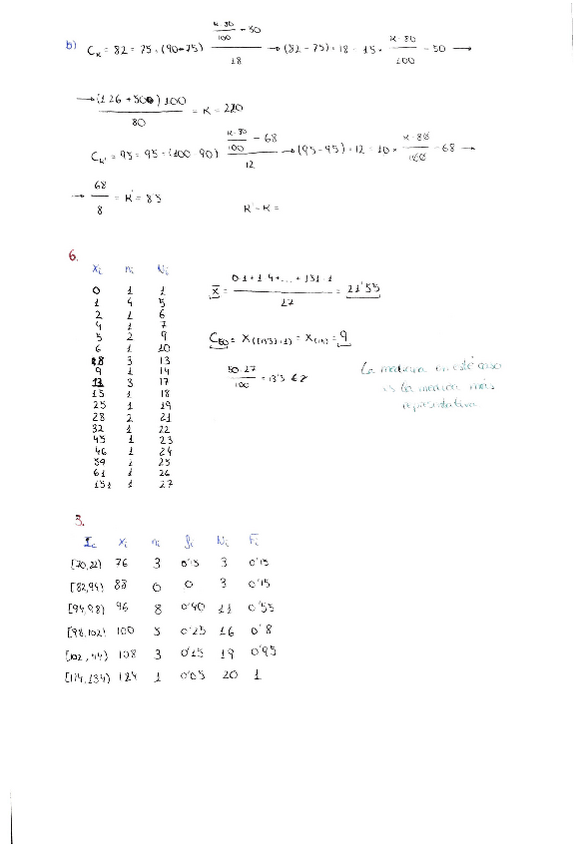 b) C_K = 82 = 75 + (90-75) (K·80/100 - 50)/18 → (82-75)·18 = 15· K·80/100 - 50 →
→ (126 + 500) 100 / 80 = K = 220
C_K' = 95 = 95 = (100-90) (K·80/100 - 68)/12 → (95-95)·12 = 10· K·80/100 - 68 →
→ 68/8 = K' = 85 K' - K =
6.
xi ni Ni
0 1 1
1 4 5
2 1 6
4 1 7
5 2 9
6 1 10
8 3 13
9 1 14
11 3 17
15 1 18
25 1 19
28 2 21
32 1 22
45 1 23
46 1 24
59 1 25
61 1 26
151 1 27
x̄ = 0·1 + 1·4 + ... + 151·1 / 27 = 21'55
C50 = X([13'5]+1) = X(14) = 9
50·27/100 = 13'5
La mediana en este caso
es la medida más
representativa
3.
Ii xi ni fi Ni Fi
[70,82) 76 3 0'15 3 0'15
[82,94) 88 0 0 3 0'15
[94,98) 96 8 0'40 11 0'55
[98,102) 100 5 0'25 16 0'8
[102,114) 108 3 0'15 19 0'95
[114,134) 124 1 0'05 20 1